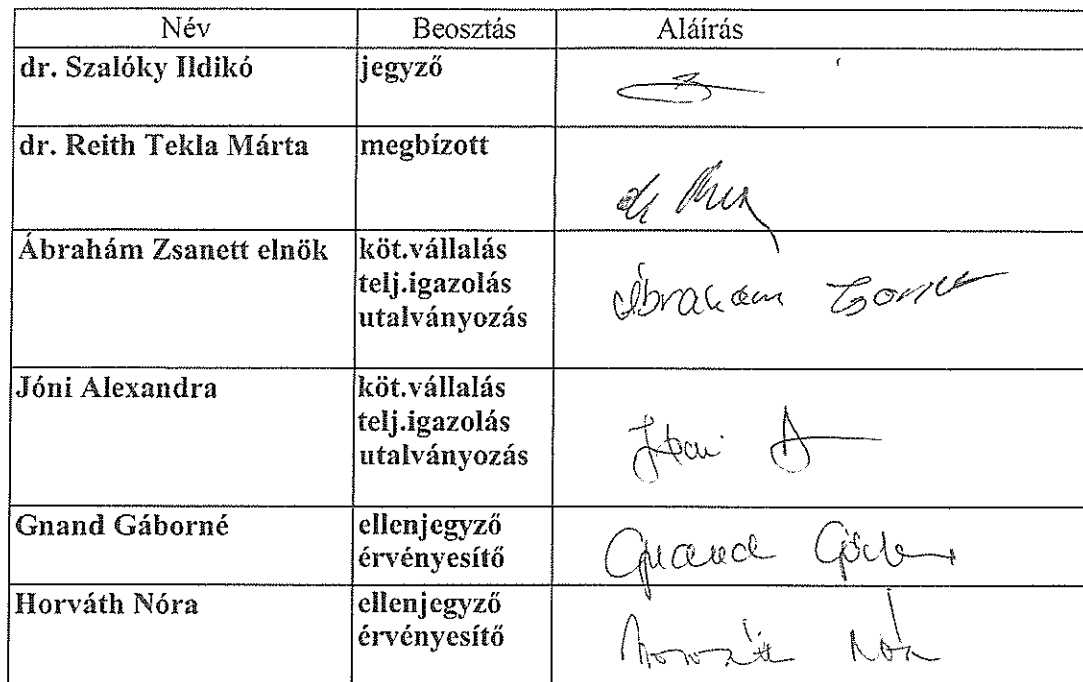 Név Beosztás Aláírás
dr. Szalóky Ildikó jegyző
dr. Reith Tekla Márta megbízott
Ábrahám Zsanett elnök köt.vállalás
telj.igazolás
utalványozás
Ábrahám
Jóni Alexandra köt.vállalás
telj.igazolás
utalványozás
Jóni A
Gnand Gáborné ellenjegyző
érvényesítő
Gnand Gáborné
Horváth Nóra ellenjegyző
érvényesítő
Horváth Nóra